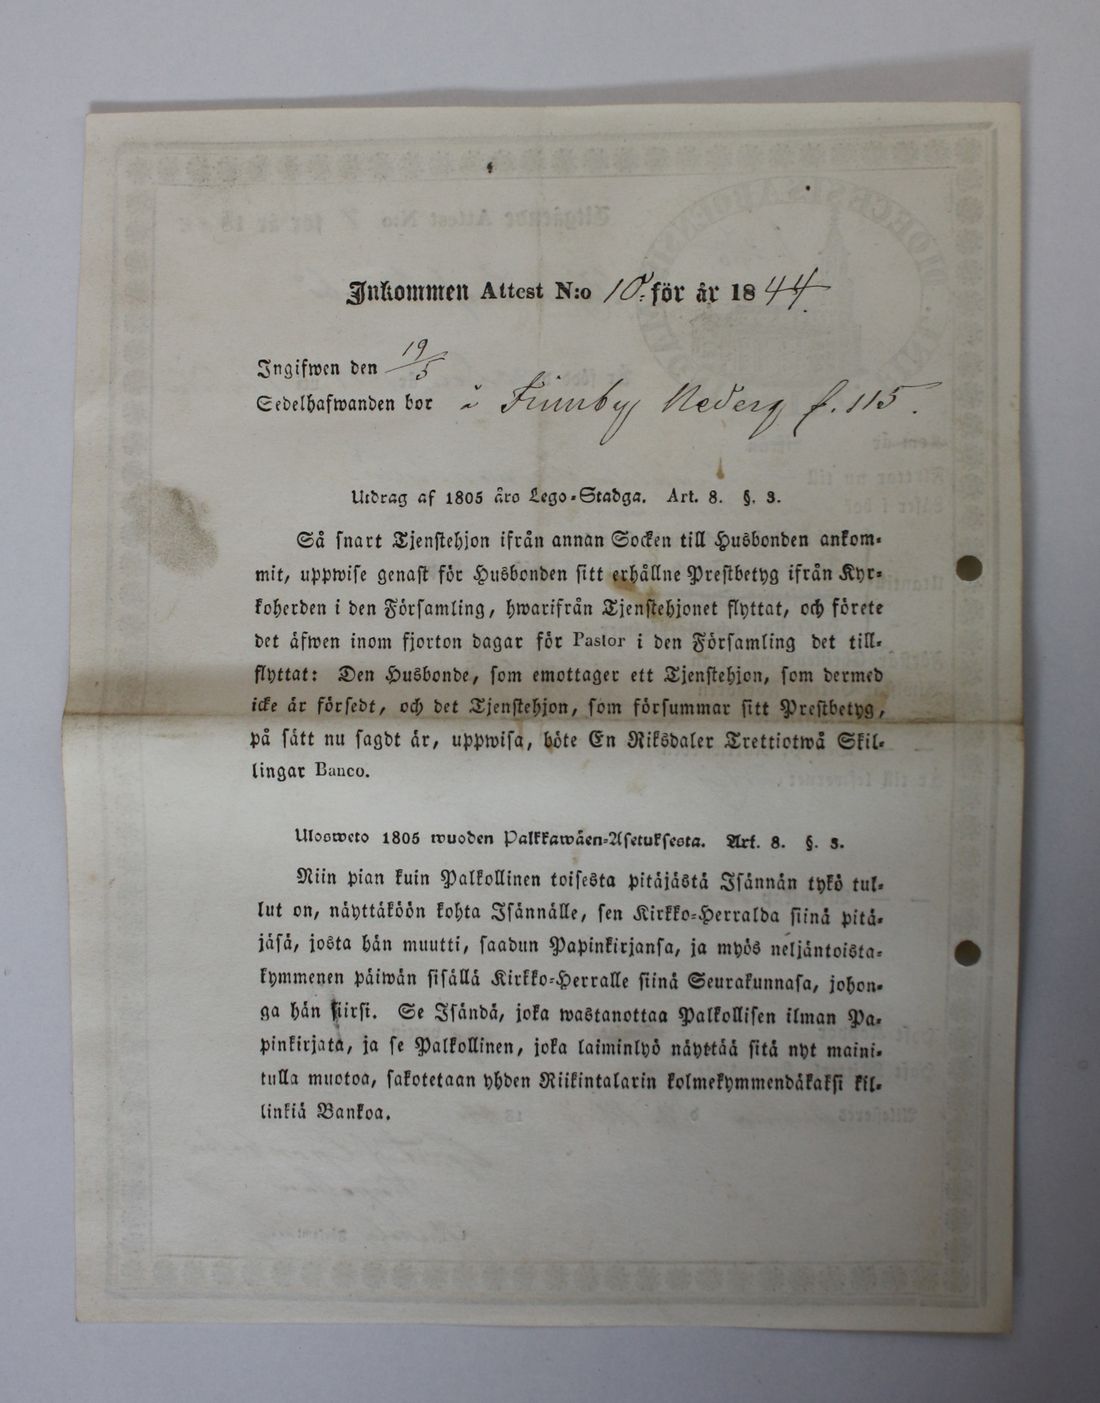 Inkommen Attest N:o 10. för år 1844.
Ingifwen den 19/5
Sedelhafwanden bor i Finnby Nederg f. 115.
Utdrag af 1805 års Lego-Stadga. Art. 8. §. 3.
Så snart Tjenstehjon ifrån annan Socken till Husbonden ankom-
mit, uppwise genast för Husbonden sitt erhållne Prestbetyg ifrån Kyr-
koherden i den Församling, hwarifrån Tjenstehjonet flyttat, och förete
det äfwen inom fjorton dagar för Pastor i den Församling det till-
flyttat: Den Husbonde, som emottager ett Tjenstehjon, som dermed
icke är försedt, och det Tjenstehjon, som försummar sitt Prestbetyg,
på sätt nu sagdt är, uppwisa, böte En Riksdaler Trettiotwå Skil-
lingar Banco.
Ulosweto 1805 wuoden Palkkawäen-Asetuksesta. Art. 8. §. 3.
Niin pian kuin Palkollinen toisesta pitäjästä Isännän tykö tul-
lut on, näyttäköön kohta Isännälle, sen Kirkko-Herralda siinä pitä-
jäsä, josta hän muutti, saadun Papinkirjansa, ja myös neljäntoista-
kymmenen päiwän sisällä Kirkko-Herralle siinä Seurakunnasa, johon-
ga hän siirsi. Se Isändä, joka wastanottaa Palkollisen ilman Pa-
pinkirjata, ja se Palkollinen, joka laiminlyö näyttää sitä nyt maini-
tulla muotoa, sakotetaan yhden Riikintalarin kolmekymmendäkaksi kil-
linkiä Bankoa.